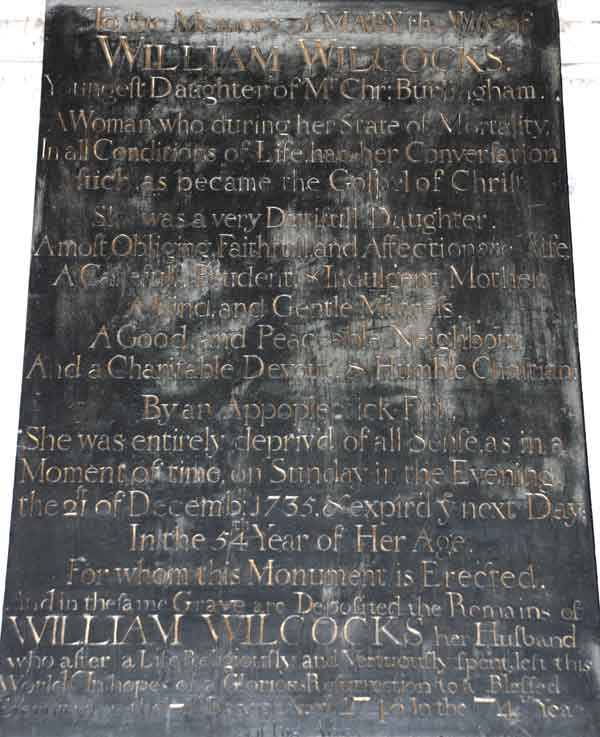 To the Memory of MARY the Wife of
WILLIAM WILCOCKS.
Youngeſt Daughter of Mr Chr: Burningham.
A Woman, who during her State of Mortality,
In all Conditions of Life, had her Converſation
ſuch, as became the Goſpel of Chriſt
She was a very Dutifull Daughter.
A moſt Obliging, Faithfull, and Affectionate Wife,
A Carefull, Prudent, & Indulgent Mother.
A Kind, and Gentle Miſtriſs.
A Good, and Peaceable Neighbour,
And a Charitable, Devout, & Humble Chriſtian;
By an Appoplectick Fitt,
She was entirely depriv'd of all Senſe, as in a
Moment, of time, on Sunday in the Evening,
the 21st of Decemb: 1735. & expir'd ye next Day.
In the 54th Year of Her Age.
For whom this Monument is Erected.
And in the ſame Grave are Depoſited the Remains of
WILLIAM WILCOCKS her Huſband
who after a Life Religiouſly and Vertuouſly ſpent, left this
World, In hopes of a Glorious Reſurrection to a Bleſſed
In the Year